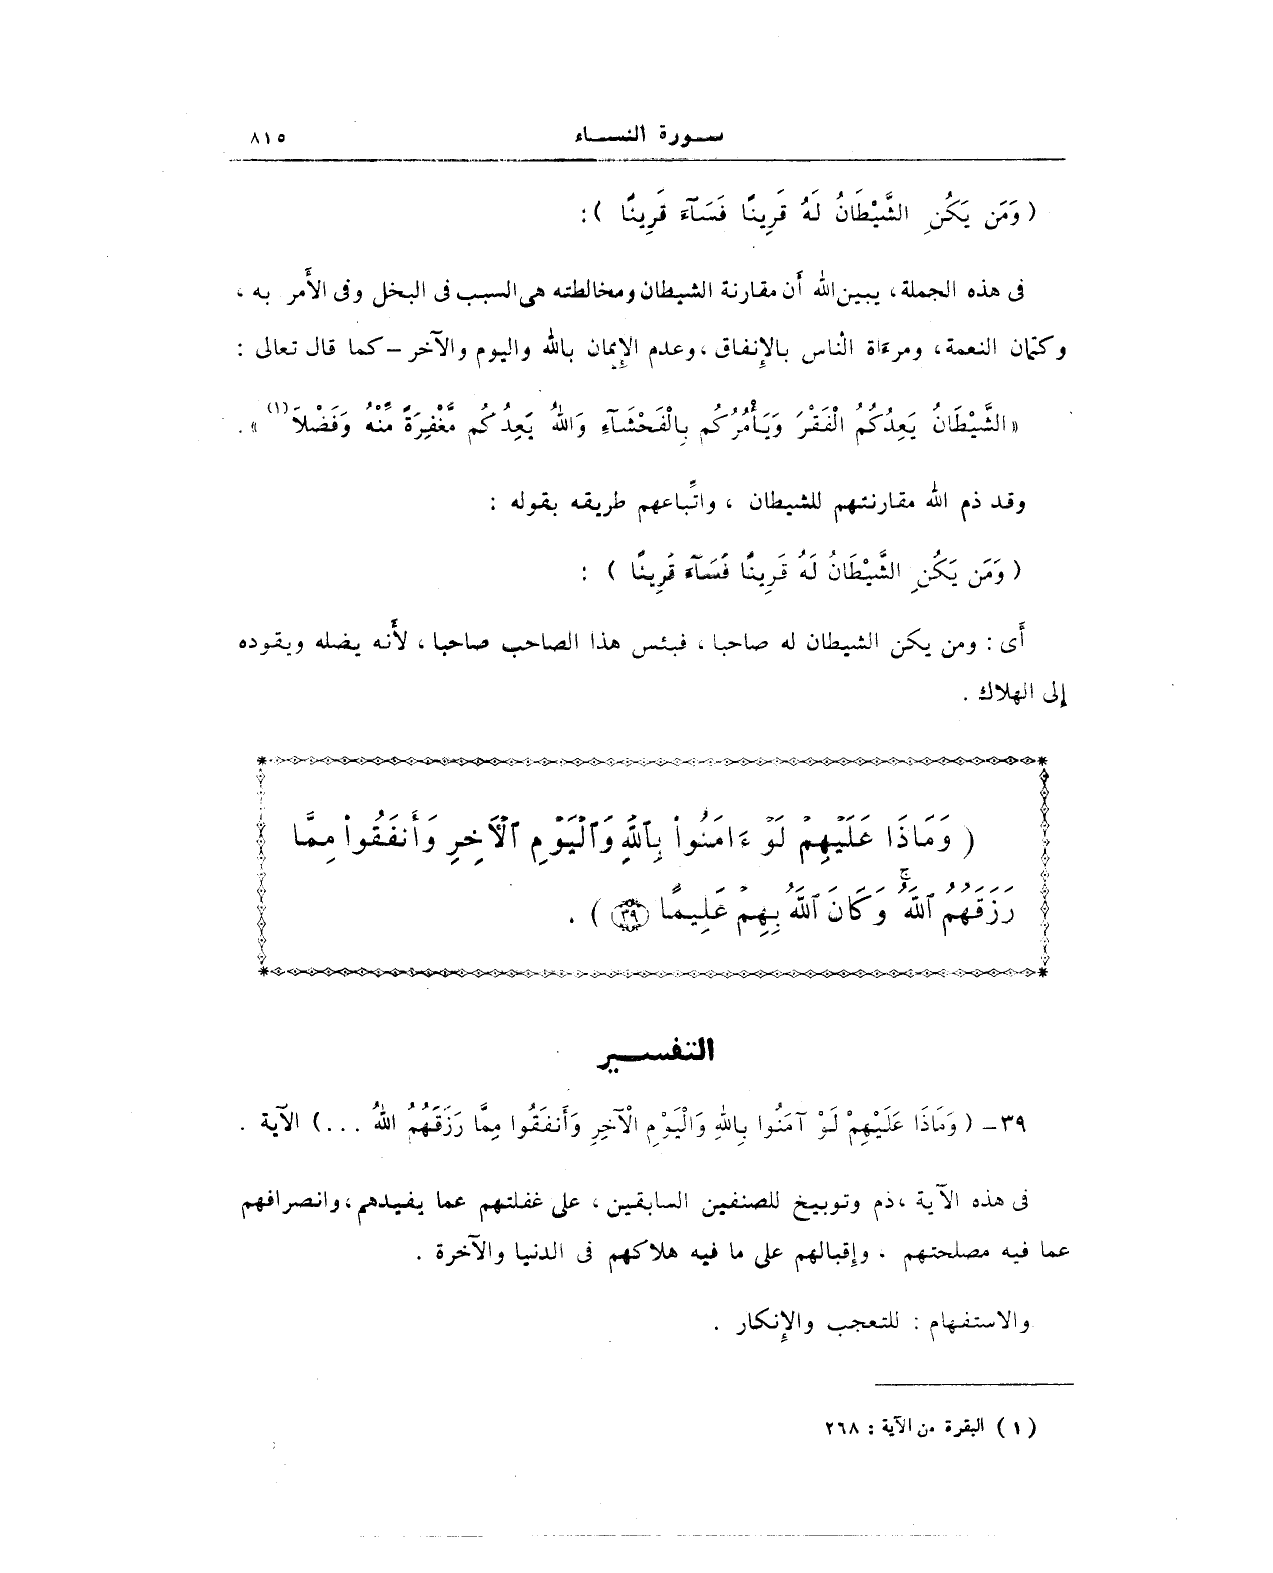 سورة النساء ٨١٥
( وَمَن يَكُنِ الشَّيْطَانُ لَهُ قَرِينًا فَسَآءَ قَرِينًا ) :
فى هذه الجملة ، يبين الله أن مقارنة الشيطان ومخالطته هى السبب فى البخل وفى الأمر به ،
وكتمان النعمة ، ومرءاة الناس بالإنفاق ، وعدم الإيمان بالله واليوم والآخر – كما قال تعالى :
« الشَّيْطَانُ يَعِدُكُمُ الْفَقْرَ وَيَأْمُرُكُم بِالْفَحْشَآءِ وَاللهُ يَعِدُكُم مَّغْفِرَةً مِّنْهُ وَفَضْلاً (١) » .
وقد ذم الله مقارنتهم للشيطان ، واتِّباعهم طريقه بقوله :
( وَمَن يَكُنِ الشَّيْطَانُ لَهُ قَرِينًا فَسَآءَ قَرِينًا ) :
أَى : ومن يكن الشيطان له صاحبا ، فبئس هذا الصاحب صاحبا ، لأَنه يضله ويقوده
إلى الهلاك .
( وَمَاذَا عَلَيْهِمْ لَوْ ءَامَنُوا۟ بِٱللَّهِ وَٱلْيَوْمِ ٱلْأَخِرِ وَأَنفَقُوا۟ مِمَّا
رَزَقَهُمُ ٱللَّهُ ۚ وَكَانَ ٱللَّهُ بِهِمْ عَلِيمًا ٣٩ ) .
التفسير
٣٩ – ( وَمَاذَا عَلَيْهِمْ لَوْ آمَنُوا بِاللهِ وَالْيَوْمِ الْآخِرِ وَأَنفَقُوا مِمَّا رَزَقَهُمُ اللهُ ... ) الآية .
فى هذه الآية ، ذم وتوبيخ للصنفين السابقين ، على غفلتهم عما يفيدهم ، وانصرافهم
عما فيه مصلحتهم . وإقبالهم على ما فيه هلاكهم فى الدنيا والآخرة .
والاستفهام : للتعجب والإنكار .
( ١ ) البقرة من الآية : ٢٦٨